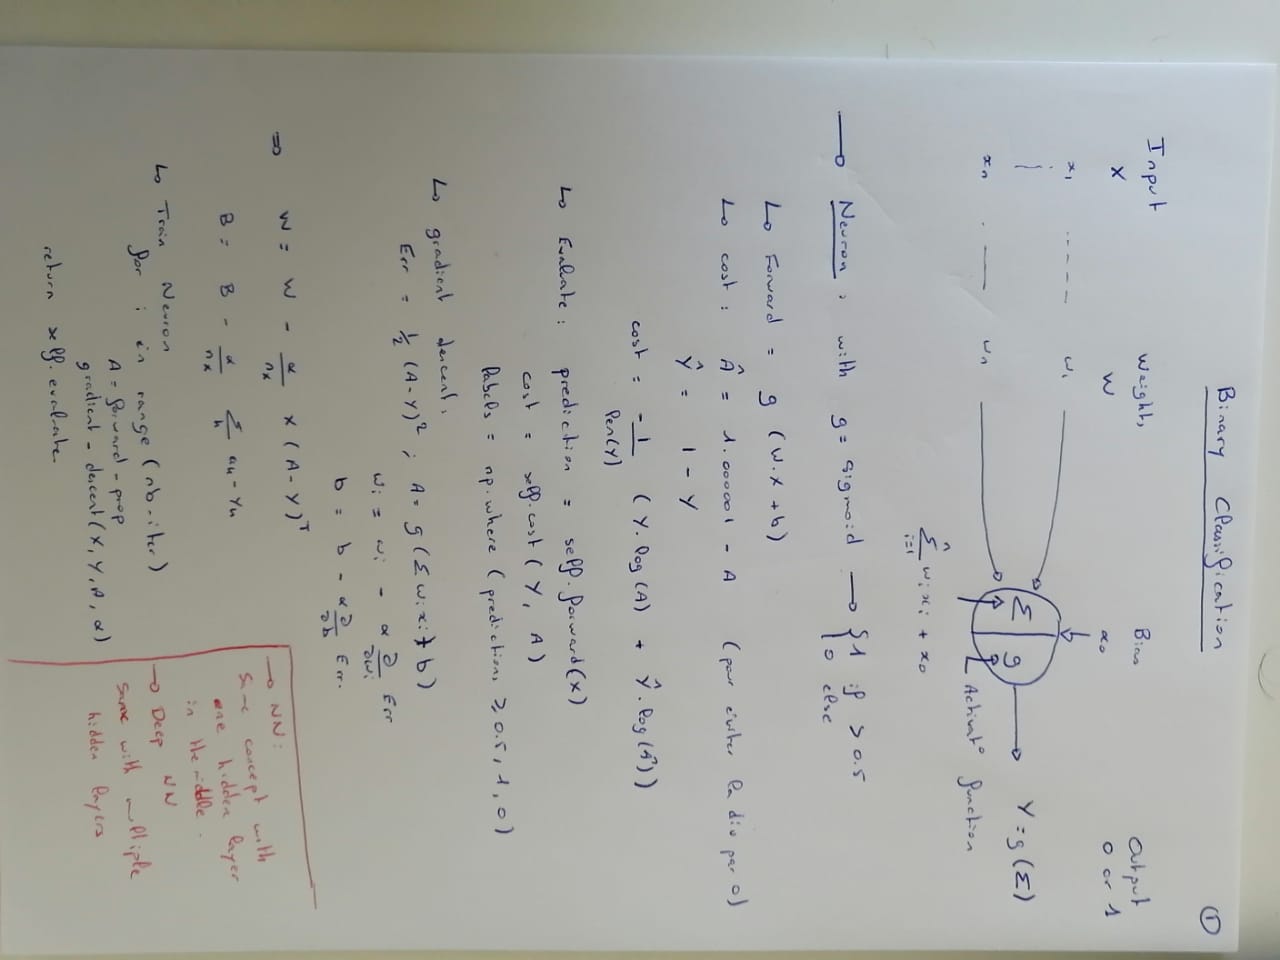 Binary Classification
1
Input Weights Bias Output
X W x0 0 or 1
x1 ------ w1
Σ g Y = g(Σ)
xn . --- wn
Activat° function
n
Σ wi xi + x0
i=1
→ Neuron: with g = sigmoid → { 1 if > 0.5
0 else
↳ Forward = g (W.X + b)
↳ cost : Â = 1.000001 - A (pour éviter la div par 0)
Ŷ = 1 - Y
cost = -1/len(Y) (Y. log(A) + Ŷ. log(Â))
↳ Evaluate : prediction = self.forward(X)
cost = self.cost(Y, A)
labels = np.where (predictions ≥ 0.5, 1, 0)
↳ gradient descent:
Err = 1/2 (A-Y)² ; A = g (Σ wi xi + b)
wi = wi - α ∂/∂wi Err
b = b - α ∂/∂b Err.
⇒ W = W - α/nx X (A-Y)ᵀ
B = B - α/nx Σn an - yn
↳ Train Neuron
for i in range (nb-iter)
A = forward-prop
gradient-descent(X, Y, A, α)
return self.evaluate
→ NN:
Same concept with
one hidden layer
in the middle.
→ Deep NN
same with multiple
hidden layers